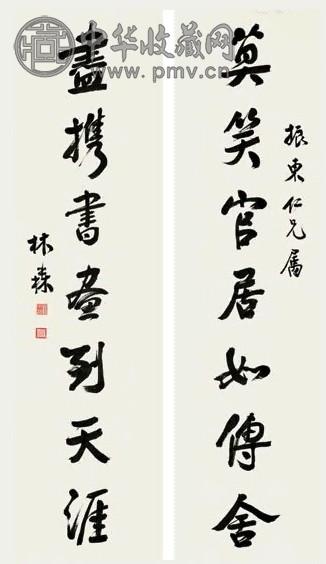 中华收藏网
www.pmv.cn
振東仁兄属
莫笑官居如傳舍
盡携書畫到天涯
林森